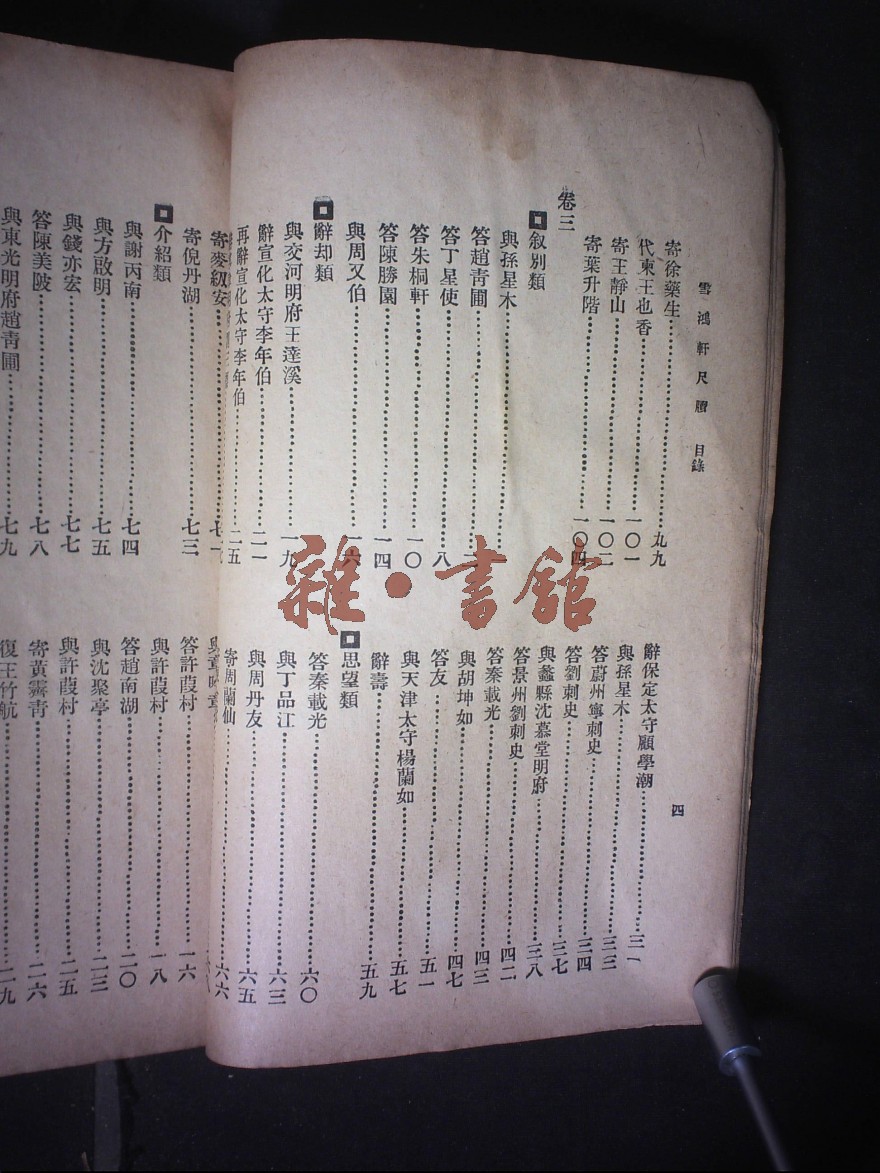 雪鴻軒尺牘 目錄
四
寄徐藥生 九九
代柬王也香 一〇一
寄王靜山 一〇二
寄葉升階 一〇四
卷三
叙別類
與孫星木
答趙青圃 二
答丁星使 八
答朱桐軒 一〇
答陳勝園 一四
與周又伯 一六
辭却類
與交河明府王達溪 一九
辭宣化太守李年伯 二一
再辭宣化太守李年伯 二五
辭保定太守顧學潮 三一
與孫星木 三三
答蔚州寧刺史 三四
答劉刺史 三七
與蠡縣沈慕堂明府 三八
答景州劉刺史 四二
答秦載光 四三
與胡坤如 四七
答友 五一
與天津太守楊蘭如 五七
辭壽 五九
思望類
答秦載光 六〇
與丁品江 六三
與周丹友 六五
寄周蘭仙 六六
寄麥紉安 七一
寄倪丹湖 七三
介紹類
與謝丙南 七四
與方啟明 七五
與錢亦宏 七七
答陳美陂 七八
與東光明府趙青圃 七九
答許葭村 一六
與許葭村 一八
答趙南湖 二〇
與沈聚亭 二三
與許葭村 二五
寄黃霽青 二六
復王竹航 二九
雜·書館